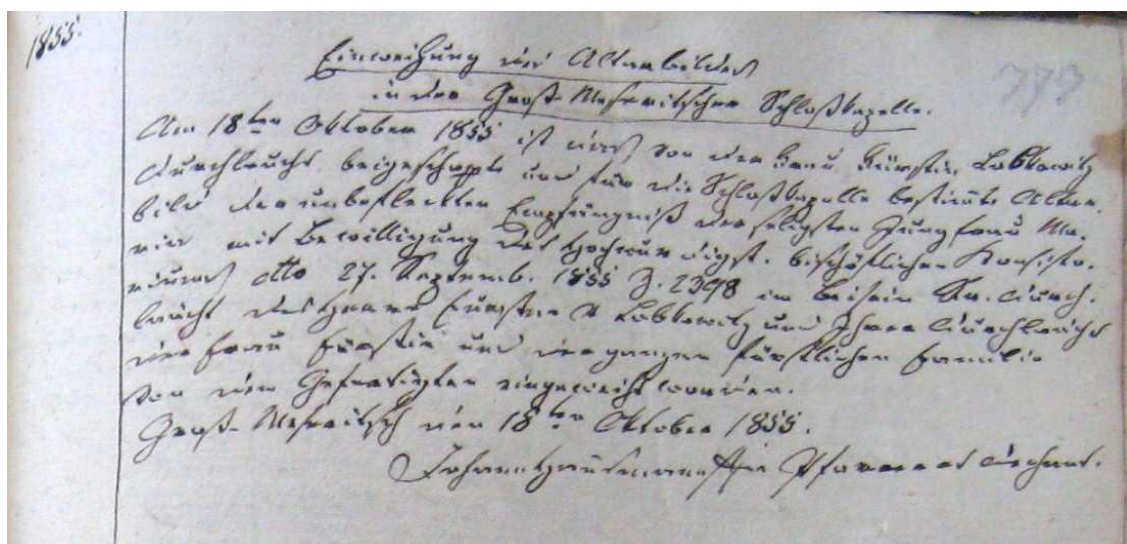 1855.
779
Einweihung des Altarbildes
in der Groß-Meseritscher Schloßkapelle.
Am 18ten Oktober 1855 ist das von der Frau Fürstin Lobkowitz
Durchlaucht beigeschaffte und für die Schloßkapelle bestimte Altar-
bild der unbefleckten Empfängniß der seligsten Jungfrau Ma-
ria mit Bewilligung des Hochwürdigst. bischöflichen Konsisto-
riums dtto 27. Septemb. 1855 Z. 2398 im Beisein Sr. Durch-
laucht des Herrn Fürsten v Lobkowitz und Ihrer Durchlaucht
der Frau Fürstin und der ganzen fürstlichen Familie
von dem Gefertigten eingeweiht worden.
Groß-Meseritsch den 18ten Oktober 1855.
Johann Pfarrer et Dechant.